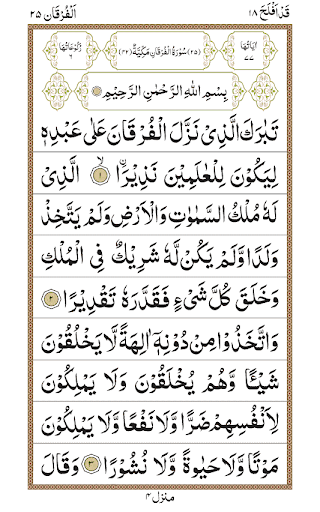 قَدْ اَفْلَحَ ۱۸
اَلْفُرْقَان ۲۵
اٰیَاتُهَا ۷۷
(۲۵) سُوْرَةُ الْفُرْقَانِ مَكِّيَّةٌ (۴۲)
رُكُوْعَاتُهَا ۶
بِسْمِ اللّٰهِ الرَّحْمٰنِ الرَّحِيْمِ
تَبٰرَكَ الَّذِيْ نَزَّلَ الْفُرْقَانَ عَلٰى عَبْدِهٖ
لِيَكُوْنَ لِلْعٰلَمِيْنَ نَذِيْرَاۙ ۱ۙ الَّذِيْ
لَهٗ مُلْكُ السَّمٰوٰتِ وَالْاَرْضِ وَلَمْ يَتَّخِذْ
وَلَدًا وَّلَمْ يَكُنْ لَّهٗ شَرِيْكٌ فِي الْمُلْكِ
وَخَلَقَ كُلَّ شَيْءٍ فَقَدَّرَهٗ تَقْدِيْرًا ۲
وَاتَّخَذُوْا مِنْ دُوْنِهٖۤ اٰلِهَةً لَّا يَخْلُقُوْنَ
شَيْـًٔا وَّهُمْ يُخْلَقُوْنَ وَلَا يَمْلِكُوْنَ
لِاَنْفُسِهِمْ ضَرًّا وَّلَا نَفْعًا وَّلَا يَمْلِكُوْنَ
مَوْتًا وَّلَا حَيٰوةً وَّلَا نُشُوْرًا ۳ وَقَالَ
منزل ۴